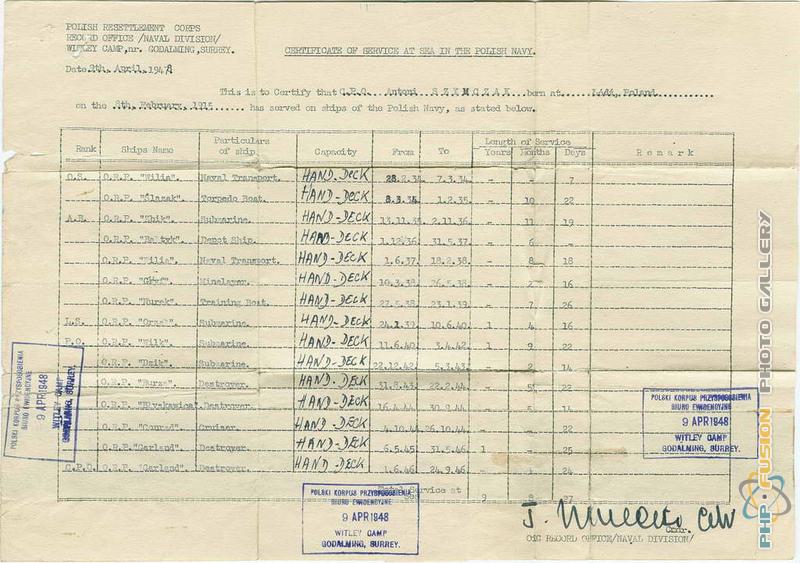 POLISH RESETTLEMENT CORPS
RECORD OFFICE /NAVAL DIVISION/
WITLEY CAMP, nr. GODALMING, SURREY.
Date 9th. April. 1948
CERTIFICATE OF SERVICE AT SEA IN THE POLISH NAVY.
This is to Certify that C.P.O. Antoni SZYMCZAK born at Łódź, Poland
on the 8th. February, 1915 has served on ships of the Polish Navy, as stated below.
Rank Ships Name Particulars of ship. Capacity From To Length of Service Years Months Days Remark
O.S. O.R.P. "Wilia". Naval Transport. HAND-DECK 28.2.34. 7.3.34. - - 7
O.R.P. "Ślązak". Torpedo Boat. HAND-DECK 8.3.34. 1.2.35. - 10 22
A.B. O.R.P. "Żbik". Submarine. HAND-DECK 13.11.35. 2.11.36. - 11 19
O.R.P. "Bałtyk". Depot Ship. HAND-DECK 1.12.36. 31.5.37. - 6 -
O.R.P. "Wilia". Naval Transport. HAND-DECK 1.6.37. 18.2.38. - 8 18
O.R.P. "Gryf". Minelayer. HAND-DECK 10.3.38. 26.5.38. - 2 16
O.R.P. "Nurek". Training Boat. HAND-DECK 27.5.38. 23.1.39. - 7 26
L.S. O.R.P. "Orzeł". Submarine. HAND-DECK 24.1.39. 10.6.40. 1 4 16
P.O. O.R.P. "Wilk". Submarine. HAND-DECK 11.6.40. 3.4.42. 1 9 22
O.R.P. "Dzik". Submarine. HAND-DECK 22.12.42. 5.3.43. - 2 14
O.R.P. "Burza". Destroyer. HAND-DECK 31.8.43. 22.2.44. - 5 22
O.R.P. "Błyskawica". Destroyer. HAND-DECK 16.4.44. 30.9.44. - 5 14
O.R.P. "Conrad". Cruiser. HAND-DECK 4.10.44. 26.10.44. - - 22
O.R.P. "Garland". Destroyer. HAND-DECK 6.5.45. 31.5.46. 1 - 25
C.P.O. O.R.P. "Garland". Destroyer. HAND-DECK 1.6.46. 24.9.46. - 24
Total Service at 9 8 27
POLSKI KORPUS PRZYSPOSOBIENIA
BIURO EWIDENCYJNE
9 APR 1948
WITLEY CAMP
GODALMING, SURREY.
POLSKI KORPUS PRZYSPOSOBIENIA
BIURO EWIDENCYJNE
9 APR 1948
WITLEY CAMP
GODALMING, SURREY.
POLSKI KORPUS PRZYSPOSOBIENIA
BIURO EWIDENCYJNE
9 APR 1948
WITLEY CAMP
GODALMING, SURREY.
Cmdr.
OiC RECORD OFFICE/NAVAL DIVISION/
PHP-FUSION PHOTO GALLERY